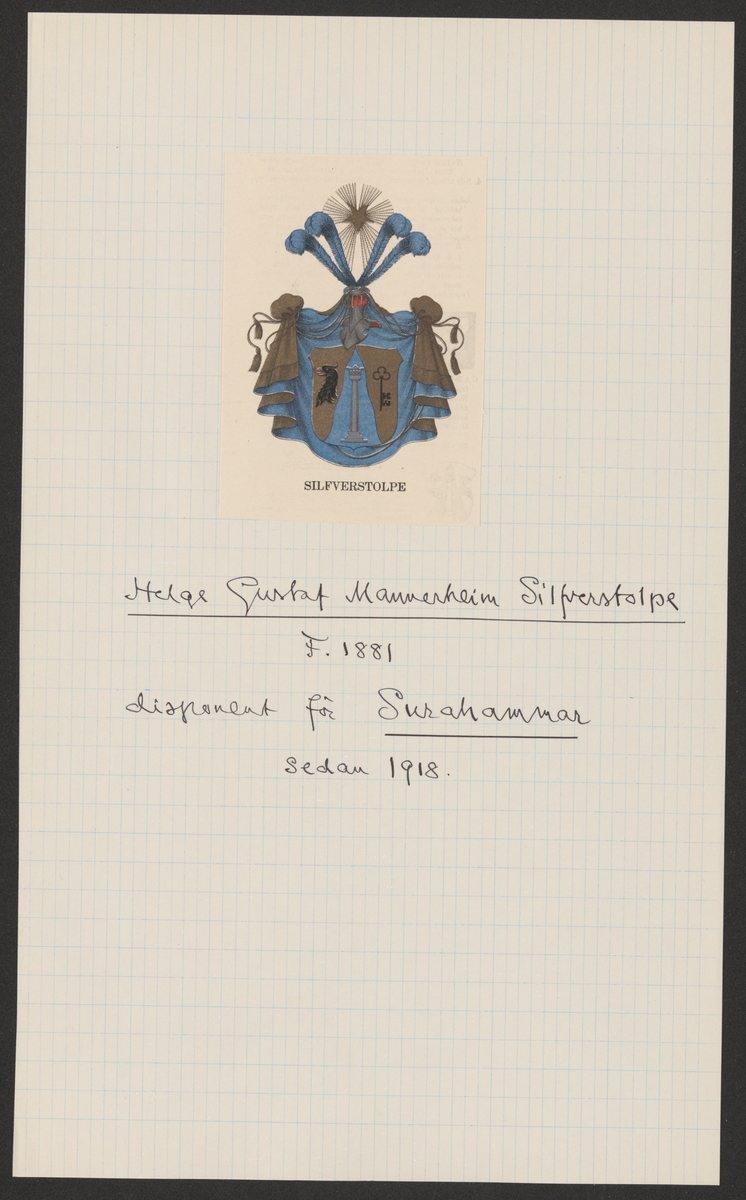 SILFVERSTOLPE
Helge Gustaf Mannerheim Silfverstolpe
F. 1881
disponent för Surahammar
sedan 1918.